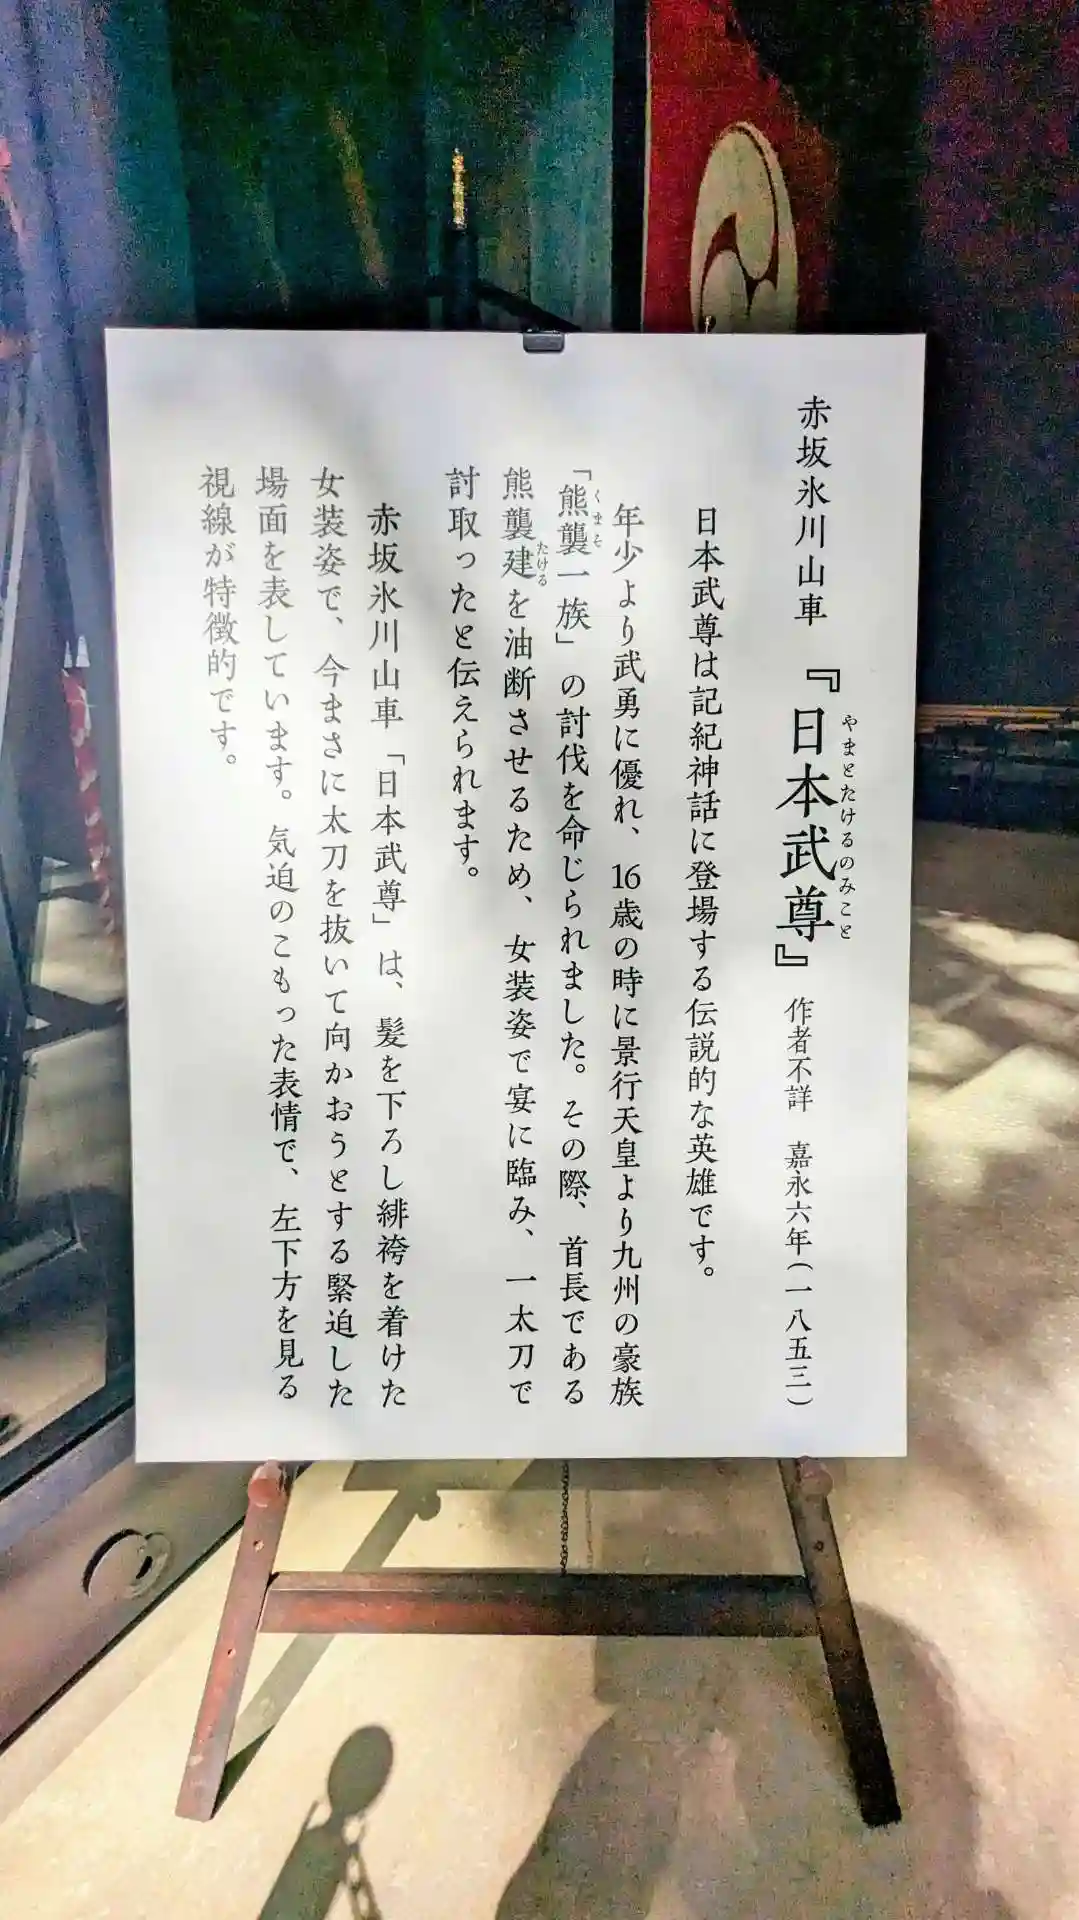 赤坂氷川山車 『日本武尊』 作者不詳 嘉永六年(一八五三)
やまとたけるのみこと
日本武尊は記紀神話に登場する伝説的な英雄です。
年少より武勇に優れ、16歳の時に景行天皇より九州の豪族
「熊襲一族」の討伐を命じられました。その際、首長である
くまそ
熊襲建を油断させるため、女装姿で宴に臨み、一太刀で
たける
討取ったと伝えられます。
赤坂氷川山車「日本武尊」は、髪を下ろし緋袴を着けた
女装姿で、今まさに太刀を抜いて向かおうとする緊迫した
場面を表しています。気迫のこもった表情で、左下方を見る
視線が特徴的です。